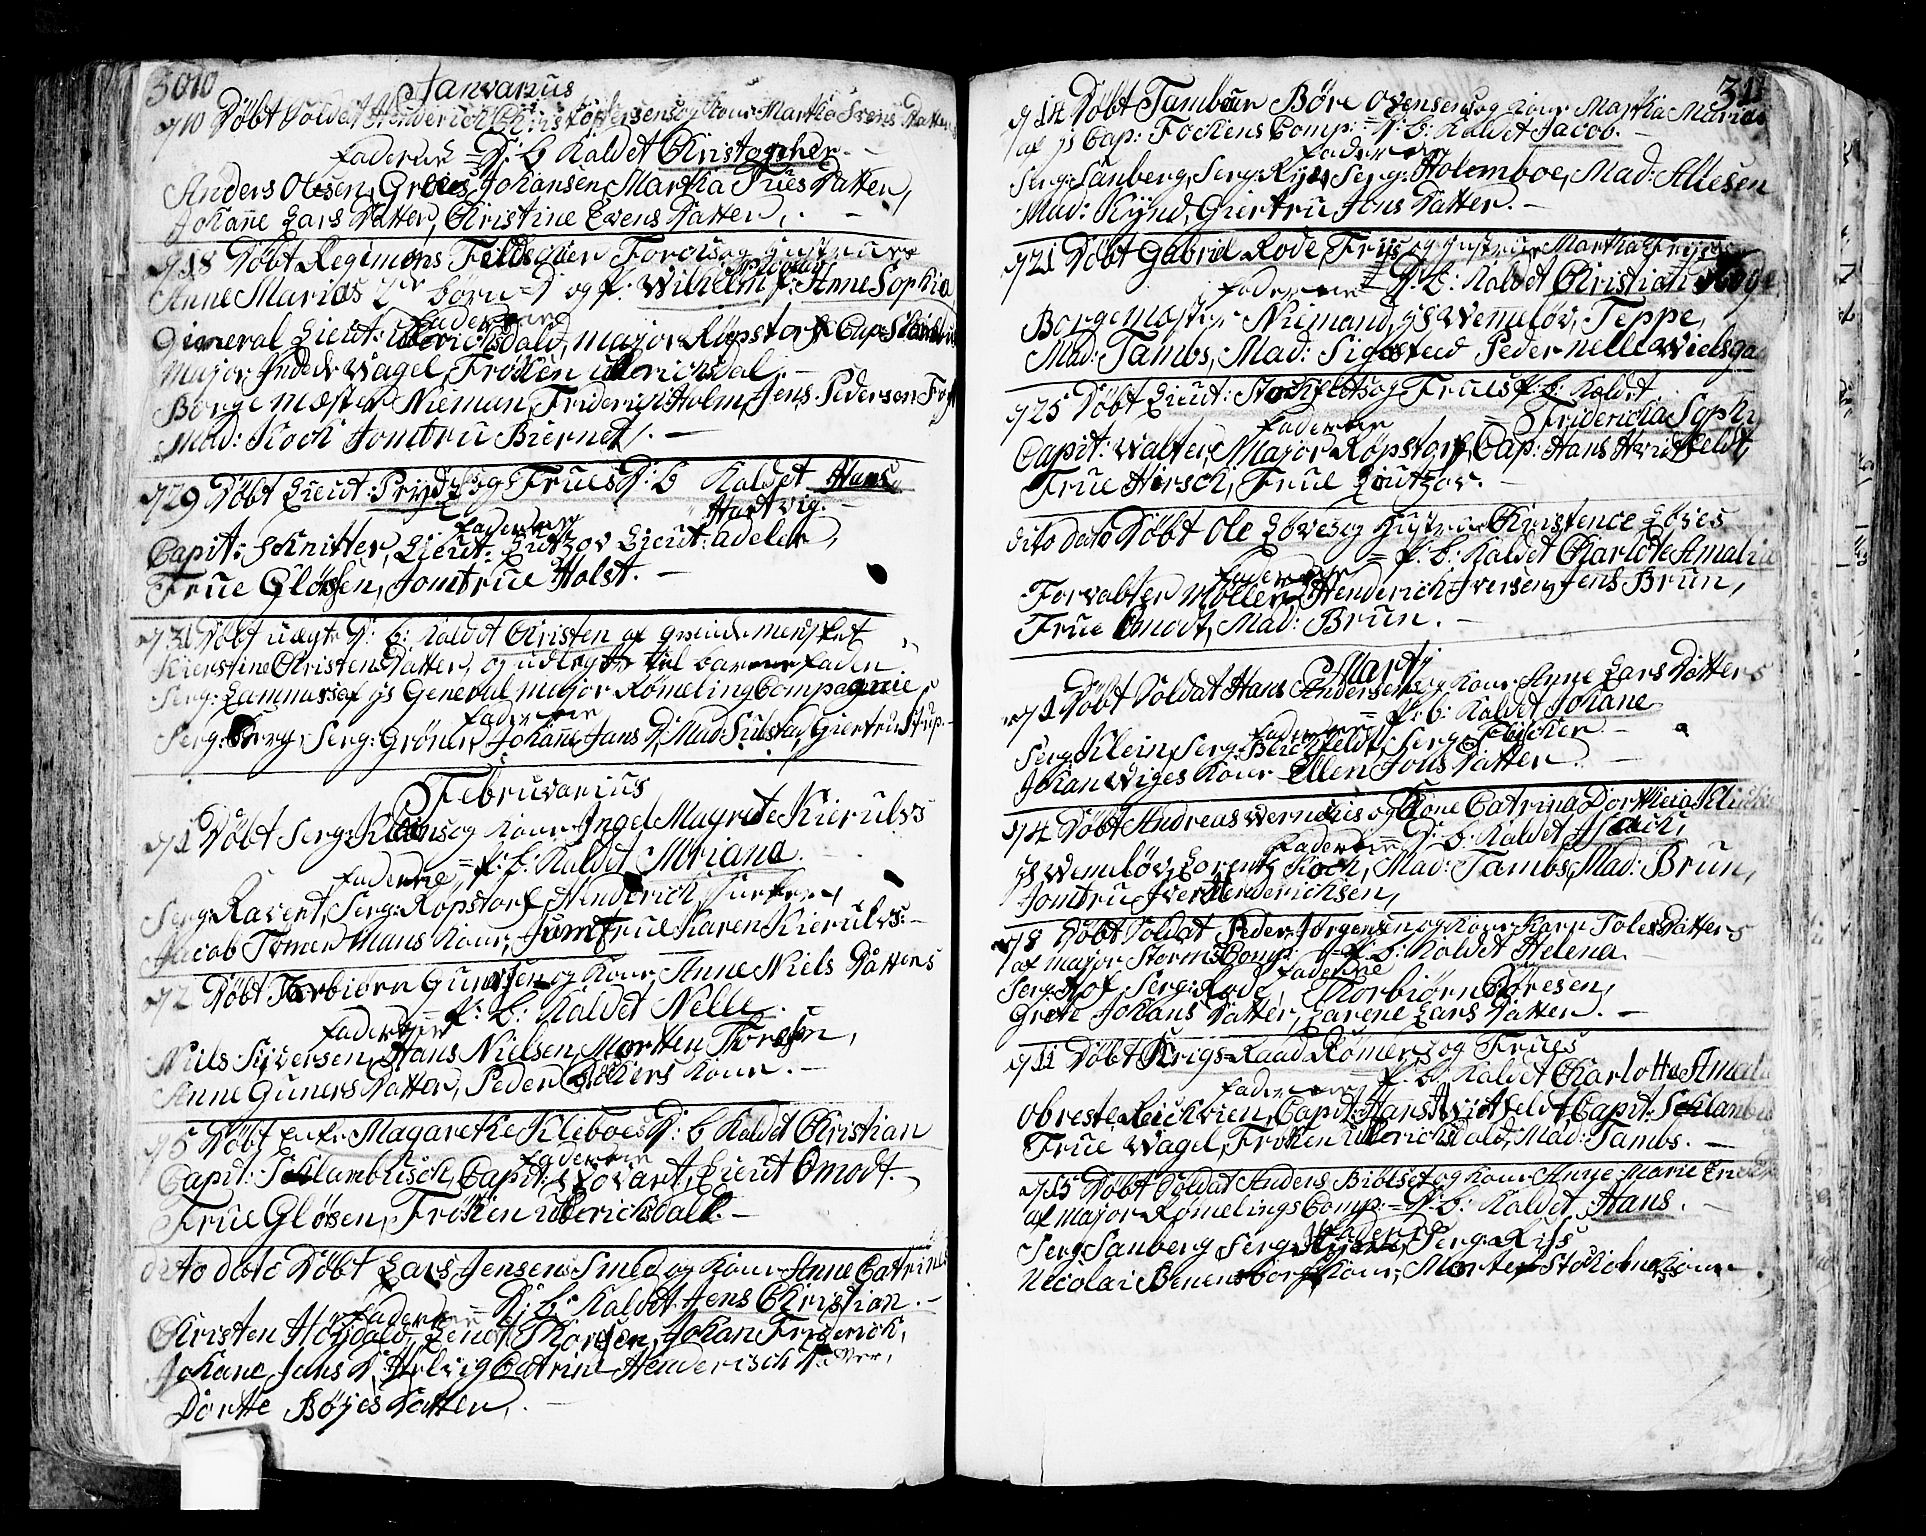 3010 Janvarius
d 10 Döbt Soldat Henderich Christophersens og Kone Martha Svens Datters
faderne = D: b Kaldet Christopher. -
Anders Olesen, Johansen, Martha Datter,
Johane Lars Datter, Christine Evens Datter. -
d 18 Döbt Regimens Feldskier og Hustrue
Anne Marias 2de börn = D og P: Wilhelm, P: Anne Sophia
faderne
General Lieut: Ulrichsdald, major Röpstorf, Cap:
Major, Wagel, Fröken Ulrichsdal. -
Borgemæster Nieman, Friderich Holm, Jens Pedersen
Mad: Koch Jomfru Biernet. -
d 29 Döbt Lieut: og Frues D: b Kaldet Hans
Hartvig. -
faderne
Capit: Schnitter, Lieut: Lützov Lieut: adeler,
Frue Glösen, Jomfrue Holst. -
d 31 Döbt uægte D: b: Kaldet Christen af qvindemensket
Kierstine Christens Datter, og udlagte til barnefader
Serg: af General major Römeling Compagnie
faderne
Serg: Berg, Serg: Gröner, Johane Jans D: Mad: Giertru Stup. -
Februvarius
d 1 Döbt Serg: Kleins og Kone Ingel Magrete Kierulvs
faderne = P: b: Kaldet Mriana.
Serg: Ravert, Serg: Röpstorf, Henderich
Jacob Tömer Mans Kone, Jomfrue Karen Kierulvs. -
d 2 Döbt Torbiörn og Kone Anne Niels Datters
faderne = P: b: Kaldet Nelle.
Niels Siversen, Hans Nielsen, Morten Thoresen,
Anne Guners Datter, Peder Kone. -
d 5 Döbt Enke Magarethe Kleboes D: b Kaldet Christian
faderne
Capit: Schlambusch, Capit: Lieut Omodt. -
Frue Glösen, Fröken Ulrichsdall. -
dito dato Döbt Lars Jensens Smed og Kone Anne Catrines
faderne = D: b: Kaldet Jens Christian. -
Christen Höydald, Johan Friderich,
Johane Jans D: Helvig Catrine Henderisch Datter,
Dorthe Böyes Datter. -
311
d 14 Döbt Tambur Böre Ovensens og Kone Martha Marias
af Cap: Fockens Comp: = D: b: Kaldet Jacob. -
faderne
Serg: Sanberg, Serg: Rÿs, Serg: Holemboe, Mad: Altesen
Mad: Kÿnd, Giertru Jons Datter. -
d 21 Döbt Gabriel Rode og Hustrue Martha
faderne = D: b: Kaldet Christian
Borgemæster Niemand, Wemelöv, Teppe,
Mad: Tambs, Mad: Sigested Pedernelle Wielsgaa
d 25 Döbt Lieut: Stockfletsog Frues P: b: Kaldet
faderne = Fridericka Soph
Capit: Walter, Major Röpstorf, Cap: Hans Hvidtfeldt,
Frue Hersch, Frue Leutzov. -
dito dato Döbt Ole Lövesog Hustrue Christence Löves
faderne = P: b: Kaldet Charlote Amalia
Forvalter Möller, Henderich Iversen, Jens Brun,
Frue Omodt, Mad: Brun. -
Martj
d 1 Döbt Soldat Hans Andersens og Kone Anne Lars Datters
faderne = P: b: Kaldet Johane
Serg: Klein, Serg: Blichfeldt, Serg:
Johan Wiges Kone Ellen Jons Datter. -
d 4 Döbt Andreas Wernekis og Kone Catrina Dortheia
faderne = D: b: Kaldet Isach,
Wemelöv, Lorentz Koch, Mad: Tambs, Mad: Brun,
Jomfru Iver Henderichsen,
d 8 Döbt Soldat Peder Jörgensen og Kone Karn Toles Datters
af major Storms Comp: P: b: Kaldet Helena. -
faderne
Serg: Hof, Serg: Rode, Thorbiörn Böresen,
Grete Johans Datter, Larene Lars Datter. -
d 11 Döbt Krigs=Raad Römers og Frues
faderne = P: b: Kaldet Charlotte Amelia
Obreste Reichvien, Capit: Hans Hvidtfeldt, Capit: Schlambus
Frue Wagel, Fröken Ulrichsdald, Mad: Tambs. -
d 15 Döbt Soldat Anders Biölset og Kone Anne Marie
af major Römelings Comp: = D: b: Kaldet Hans. -
faderne
Serg: Sanberg Serg: Serg: Rijs
Necolai Benensborg Kone, Morten Stockolms Kone.